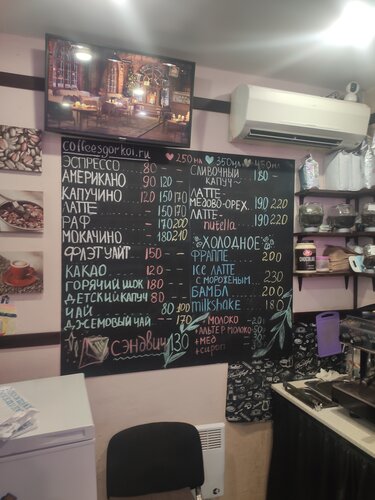 coffeesgorkoi.ru ♥250мл ♥350мл ♥450мл
ЭСПРЕССО 80 - -
АМЕРИКАНО 90 120 -
КАПУЧИНО 120 150 170
ЛАТТЕ - 150 170
РАФ - 170 200
МОКАЧИНО - 180 210
ФЛЭТ УАЙТ - 150 -
КАКАО 120 - -
ГОРЯЧИЙ ШОК 180 - -
ДЕТСКИЙ КАПУЧ 80 - -
ЧАЙ 80 100 -
ДЖЕМОВЫЙ ЧАЙ - - 170
СЭНДВИЧ 130
СЛИВОЧНЫЙ КАПУЧ~ - 180 -
ЛАТТЕ МЕДОВО-ОРЕХ. - 190 220
ЛАТТЕ - nutella - 190 220
ХОЛОДНОЕ
ФРАППЕ 200
ICE ЛАТТЕ
С МОРОЖЕНЫМ 230
БАМБЛ 200
milkshake 180
+МОЛОКО
+АЛЬТЕР МОЛОКО
+МЕД
+сироп